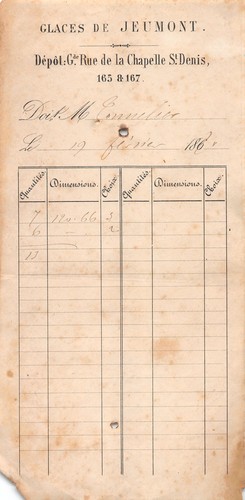 GLACES DE JEUMONT.
Dépôt: Gde Rue de la Chapelle St Denis,
165 & 167.
Doit M
Le 19 février 186
Quantités. Dimensions. Choix. Quantités. Dimensions. Choix.
7 114-66 3
6 " 2
13